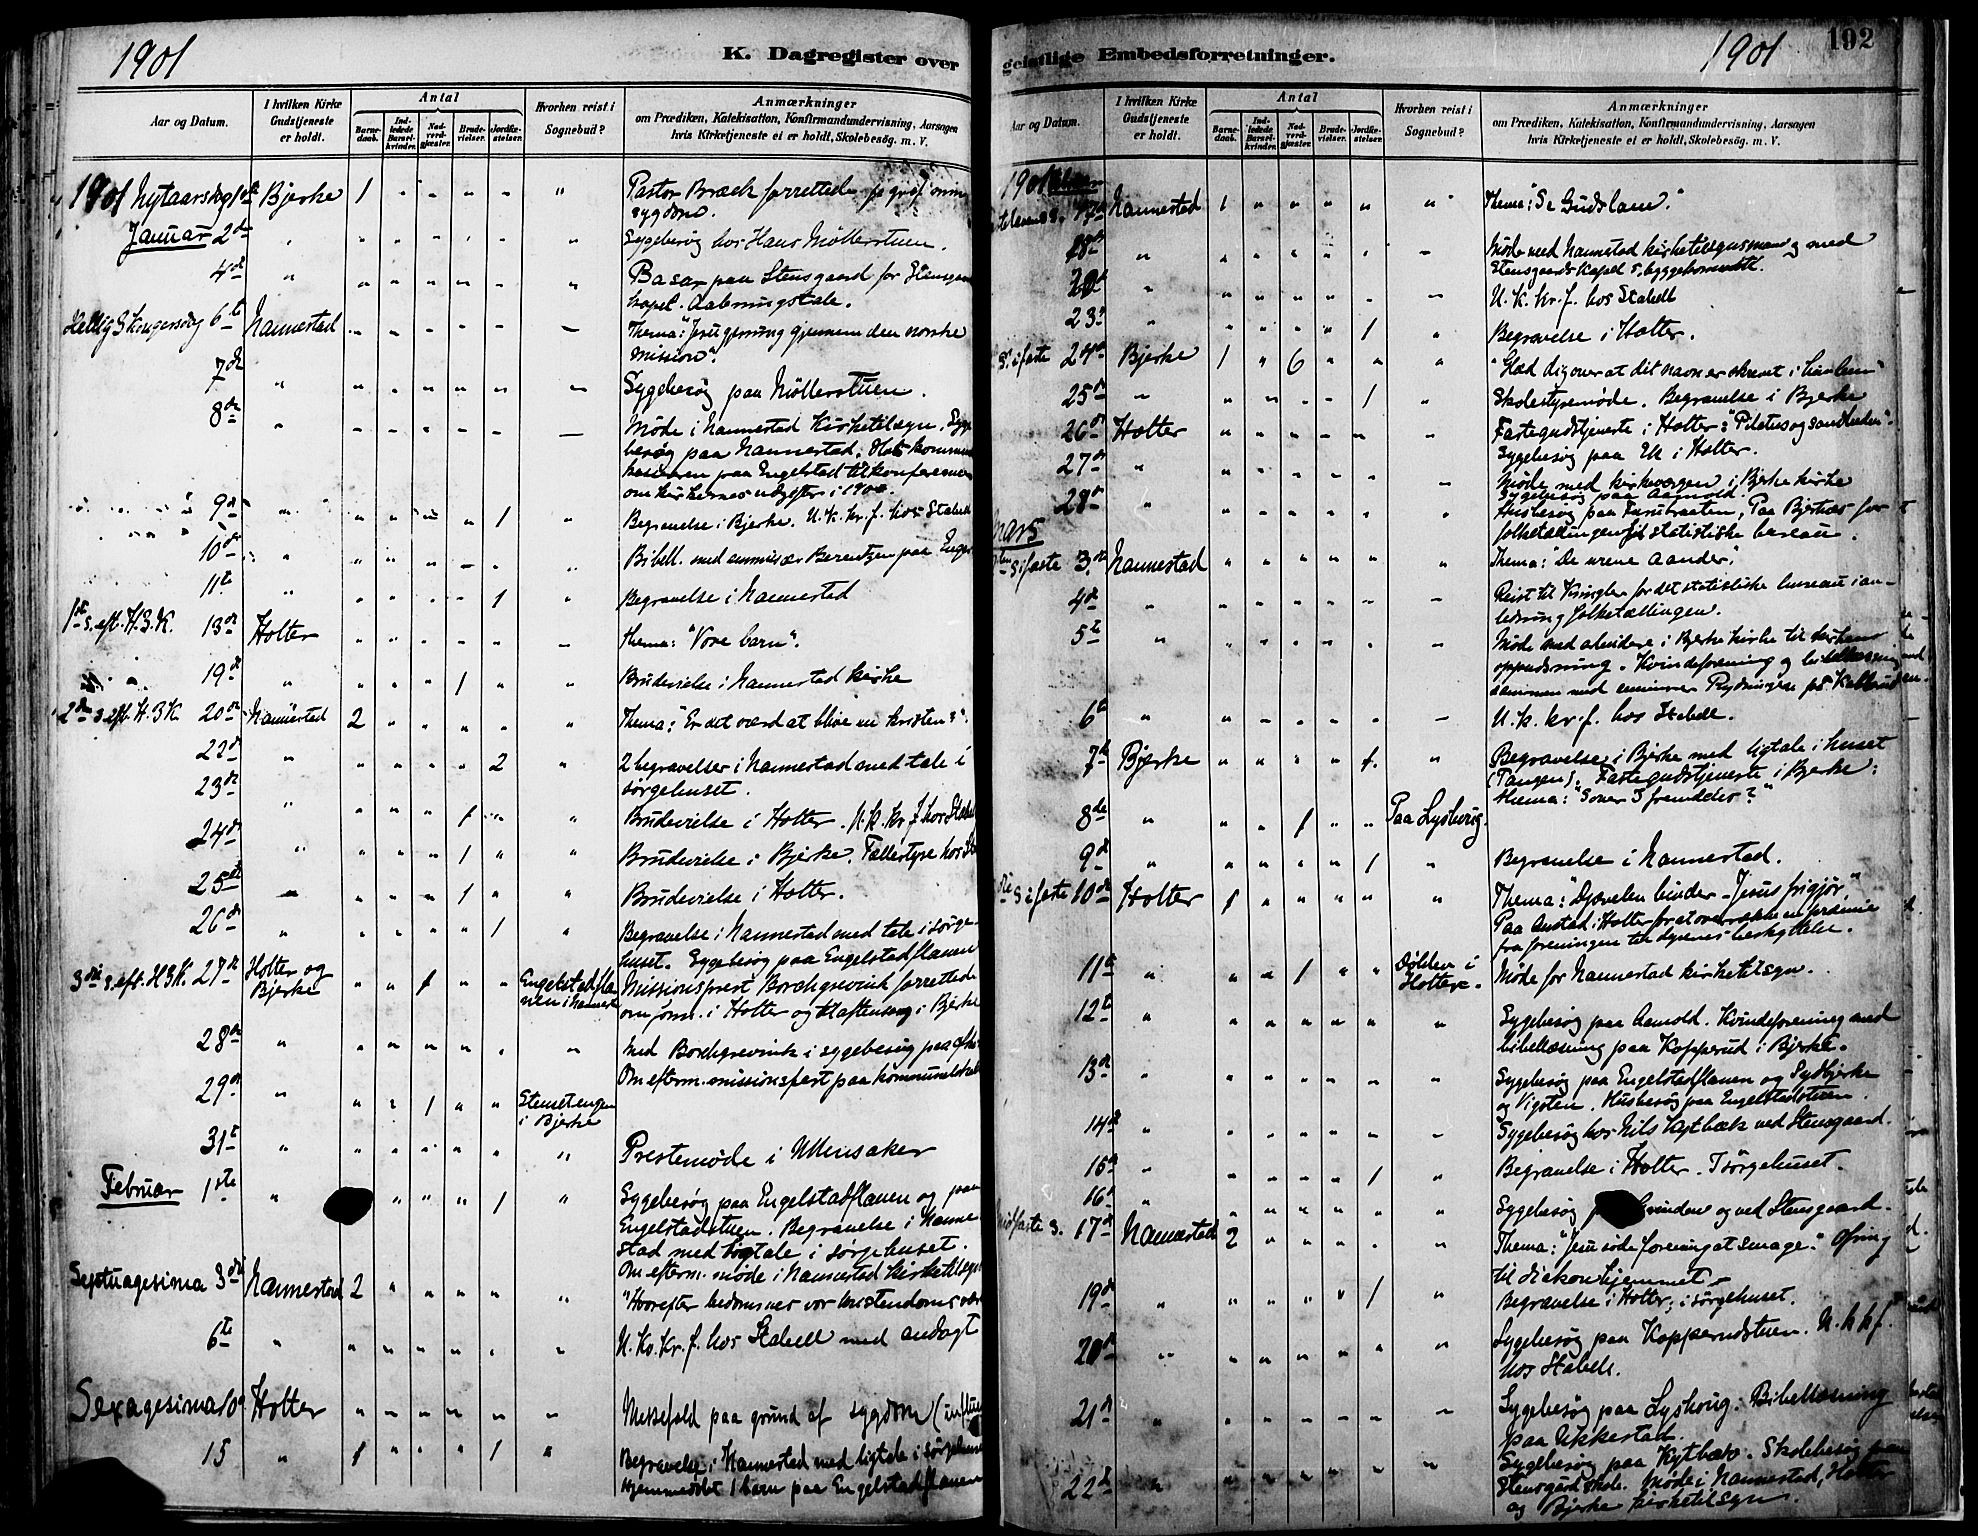 1901
K. Dagregister over
Aar og Datum.
I hvilken Kirke
Gudstjeneste
er holdt.
Antal
Barne-
daab.
Ind-
ledede
Barsel-
kvinder.
Nad-
verd-
gjæster.
Brude-
vielser.
Jordfæ-
stelser.
Hvorhen reist i
Sognebud?
Anmærkninger
om Prædiken, Katekisation, Konfirmandundervisning, Aarsagen
hvis Kirketjeneste ei er holdt, Skolebesög. m. V.
1901 Nytaarsdag 1ste Bjerke 1 " " " " " Pastor Bræck forrettede
sygdom.
Januar 2den " " " " " " " Sygebesøg hos Hans Møllerstuen.
4de " " " " " " " Basar paa Stensgaard for
kapel. Aabningstale.
Hellig 3 Kongersdag 6te Nannestad " " " " " " Thema: "Jesu gjerning gjennem den norske
mission".
7de " " " " " " " Sygebesøg paa Møllerstuen.
8de " " " " " " " Møde i Nannestad Kirketilsyn. Syge-
besøg paa Nannestad.
paa Engelstad til konference
om kirkernes udgifter i 1900.
9de " " " " " 1 " Begravelse i Bjerke. U. k. kr. f. hos Stabell
10de " " " " " " " Bibell. med emissær Berentzen paa
11te " " " " " 1 " Begravelse i Nannestad
1ste s. eft. H. 3. K. 13de Holter " " " " " " Thema: "Vore barn".
19de " " " " 1 " " Brudevielse i Nannestad kirke
2den s. eft. H. 3 K. 20de Nannestad 2 " " " " " Thema: "Er det værd at blive en kristen?".
22de " " " " " 2 " 2 begravelser i Nannestad med tale i
sørgehuset.
23de " " " " 1 " " Brudevielse i Holter. U. k. kr. f. hos Stabell
24de " " " " 1 " " Brudevielse i Bjerke. Fællestyre hos
25de " " " " 1 " " Brudevielse i Holter.
26de " " " " " 1 " Begravelse i Nannestad med tale i sørge-
huset. Sygebesøg paa Engelstadflauen
3die s. eft. H 3 K. 27de Holter og
Bjerke " " 1 " " Engelstadfla-
uen i Nannest. Missionsprest Borchgrevink forrettede
om form. i Holter og til aftensang i Bjerke
28de " " " " " " " Med Borchgrevink i sygebesøg paa
Om efterm. missionsfest paa kommunelokalet
29de " " " 1 " " Stensetengen
i Bjerke
31te " " " " " " " Prestemøde i Ullensaker
Februar 1ste " " " " 1 " Sygebesøg paa Engelstadflauen og paa
Engelstadstuen. Begravelse i Nanne-
stad med ligtale i sørgehuset.
Om efterm. møde i Nannestad kirketilsyn
Septuagesima 3die Nannestad 2 " " " " " "Hvorefter bedømmes vor kristendoms
6te " " " " " " " U. K. Kr. f. hos Stabell med andagt
Sexagesima 10de Holter " " " " " " Messefald paa grund af sygdom (influ
15 " 1 " " " 1 " Begravelse i Nannestad med ligtale i sørgehuset
Hjemmedøbt 1 barn paa Engelstadflauen
geistlige Embedsforretninger.
1901
192
Aar og Datum.
I hvilken Kirke
Gudstjeneste
er holdt.
Antal
Barne-
daab.
Ind-
ledede
Barsel-
kvinder.
Nad-
verd-
gjæster.
Brude-
vielser.
Jordfæ-
stelser.
Hvorhen reist i
Sognebud?
Anmærkninger
om Prædiken, Katekisation, Konfirmandundervisning, Aarsagen
hvis Kirketjeneste ei er holdt, Skolebesög. m. V.
1901
17de Nannestad 1 " " " " " Thema: "Se Guds lam."
18de " " " " " " " Møde med Nannestad kirketilsynsmænd og med
Stensgaards kapel s. byggekomité.
20de " " " " " " " U. k. kr. f. hos Stabell
23de " " " " " 1 " Begravelse i Holter.
s. i faste 24de Bjerke 1 " 6 " " " "Glæd dig over at dit navn er skrevet i himlen"
25de " " " " " 1 " Skolestyremøde. Begravelse i Bjerke
26de Holter " " " " " " Fastegudstjeneste i Holter: "Pilatus og sandheden".
27de " " " " " " " Sygebesøg paa Ek i Holter.
28de " " " " " " " Møde med kirkevergen i Bjerke kirke
Sygebesøg paa Aamold.
Husbesøg paa Furubraaten, Paa Bjerkes for
folketællingen til statistiske bureau.
Mars
s. i faste 3die Nannestad " " " " " " Thema: "De urene aander".
4de " " " " " " " Reist til Kringler for det statistiske bureau i an-
ledning folketællingen.
5te " " " " " " " Møde med arbeidere i Bjerke kirke til kirkens
oppudsning. Kvindeforening og bibellæsning
sammen med emissær Rydningen på Kallerud
6te " " " " " " " U. k. kr. f. hos Stabell.
7de Bjerke " " " " 1 " Begravelse i Bjerke med ligtale i huset
(Tangen); Fastegudstjeneste i Bjerke:
thema: "Sover I fremdeles?"
8de " " " 1 " " Paa Lyshoug.
9de " " " " " 1 " Begravelse i Nannestad.
s. i faste 10de Holter 1 " " " " " Thema: "Djævelen binder - Jesus frigjør."
Paa Austad i Holter for at overrække en præmie
fra foreningen til dyrenes beskyttelse.
11te " " " 1 " " Dølden i
Holter. Møde for Nannestad kirketilsyn.
12te " " " " " " " Sygebesøg paa Aamold. Kvindeforening med
bibellæsning paa Kopperud i Bjerke.
13de " " " " " " " Sygebesøg paa Engelstadflauen og Sydbjerke
og Vigsten. Husbesøg paa Engelstadstuen.
14de " " " " " " " Sygebesøg hos Nils Kytbæk ved Stensgaard.
15de " " " " " 1 " Begravelse i Holter. I sørgehuset.
16de " " " " " " " Sygebesøg og ved Stensgaard.
Midfaste s. 17de Nannestad 2 " " " " " Thema: "Jesu søde forening at smage." Ofring
til diakonhjemmet.
19de " " " " " 1 " Begravelse i Holter; i sørgehuset.
20de " " " " " " " Sygebesøg paa Kopperudstuen. U. k. k. f.
hos Stabell.
21de " " " " " " " Sygebesøg paa Lyshoug. Bibellæsning
paa Ukkestad.
22de " " " " " " " Sygebesøg paa Kytbæk. Skolebesøg paa
Stensgård skole. Møde i Nannestad, Holter
og Bjerke kirketilsyn.